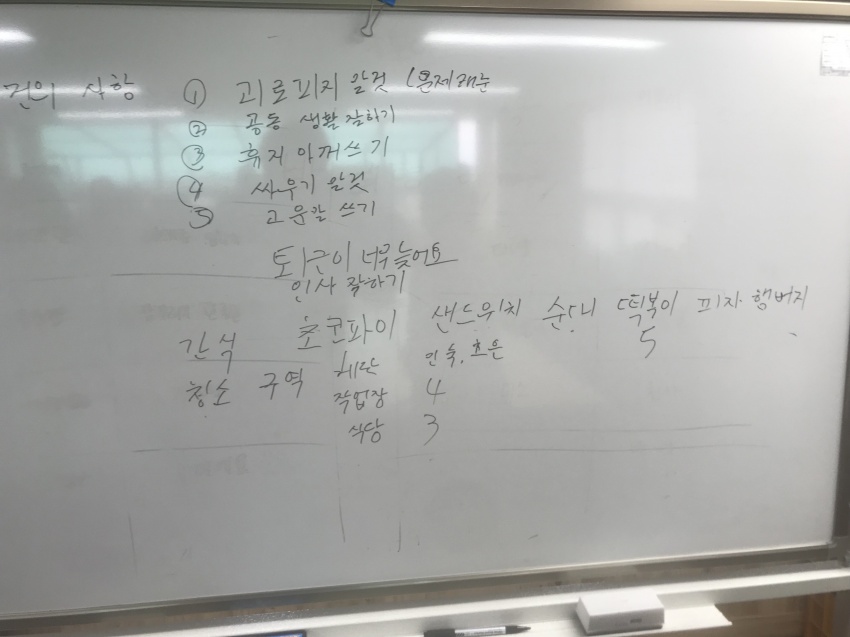 건의 사항 ① 괴로피지 않것 (문제래눈
② 공동 생활 잘하기
③ 휴지 아껴쓰기
④ 싸우기 않것
⑤ 고운말 쓰기
퇴근이 너무 늦어요
인사 잘하기
간식 초코파이 샌드위치 순대 떡볶이 피자 햄버지
5
청소 구역 계단
작업장 4
식당 3